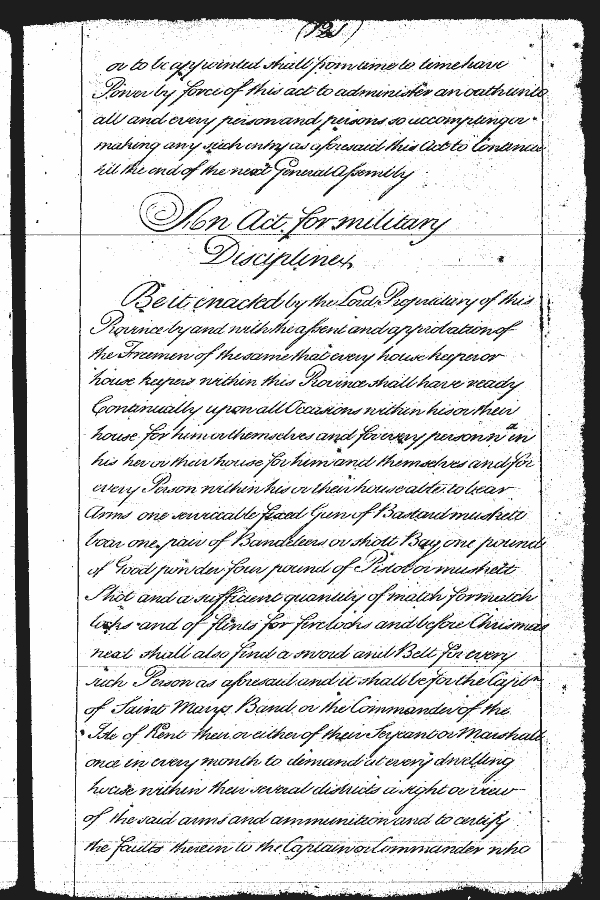 (121)
or to be appointed shall from time to time have
Power by force of this act to administer an oath unto
all and every person and persons so accompting or
making any such entry as aforesaid this Act to Continue
till the end of the next General Assembly
An Act for military
Discipline
Be it enacted by the Lord Proprietary of this
Province by and with the assent and approbation of
the Freemen of the same that every house keeper or
house keepers within this Province shall have ready
Continually upon all Occasions within his or their
house for him or themselves and for every person within
his her or their house for him and themselves and for
every Person within his or their house able to bear
Arms one serviceable fixed Gun of Bastard muskett
boar one pair of Bandeleers or shott Bag one pound
of Good powder four pound of Pistol or muskett
Shot and a sufficient quantity of match for match
locks and of flints for firelocks and before Christmas
next shall also find a sword and Belt for every
such Person as aforesaid and it shall be for the Captn
of Saint Marys Band or the Commander of the
Isle of Kent their or either of their Serjeant or Marshall
once in every month to demand at every dwelling
house within their several districts a sight or view
of the said arms and ammunition and to certify
the faults therein to the Captain or Commander who